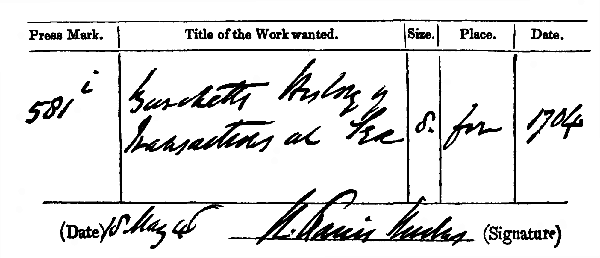 Press Mark. Title of the Work wanted. Size. Place. Date.
581 i Burchett's History of
Transactions at Sea 8. fon 1704
(Date) 18 May 46 N. Harris Nicolas (Signature)